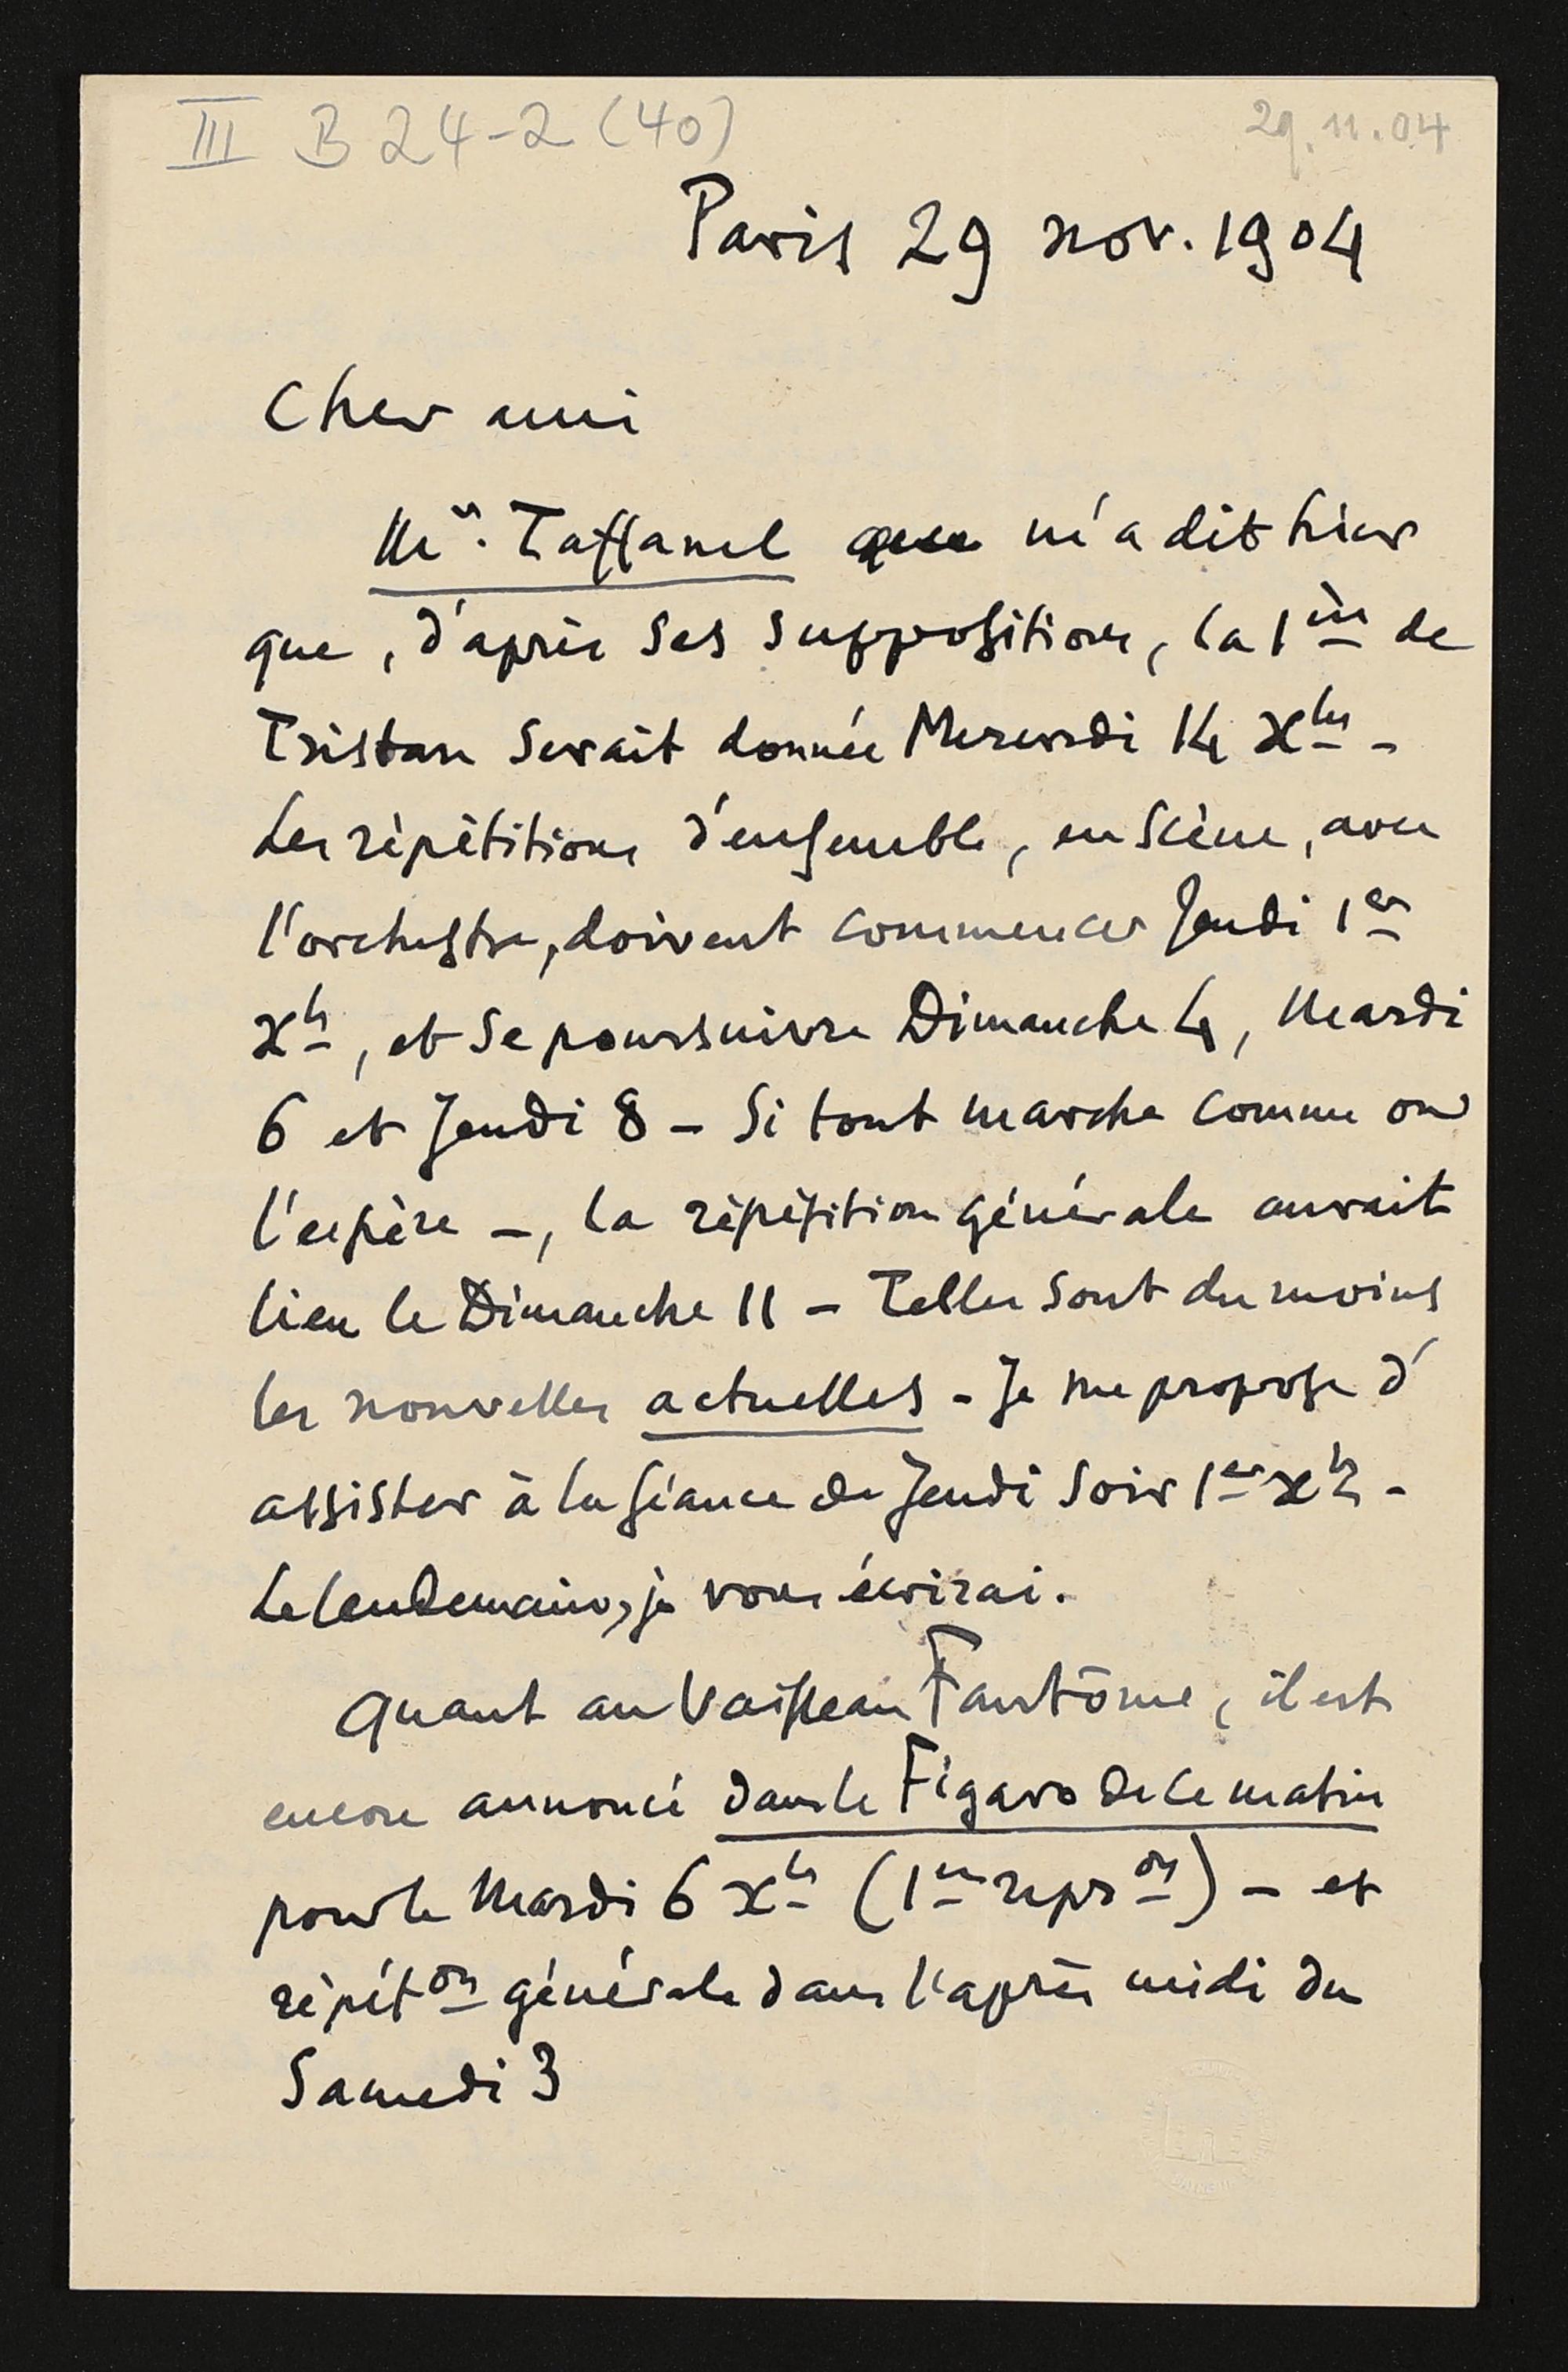 III B 24-2 (40)
29.11.04
Paris 29 nov. 1904
Cher ami
Mr. Taffanel m'a dit hier
que, d'après ses suppositions, la 1ère de
Tristan serait donnée Mercredi 14 xbre -
Les répétitions d'ensemble, en scène, avec
l'orchestre, doivent commencer Jeudi 1er
xbre, et se poursuivre Dimanche 4, Mardi
6 et Jeudi 8 - Si tout marche comme on
l'espère -, la répétition générale aurait
lieu le Dimanche 11 - Telles sont du moins
les nouvelles actuelles - Je me propose d'
assister à la séance de Jeudi soir 1er xbre -
Le lendemain, je vous écrirai.
Quant au Vaisseau Fantôme, il est
encore annoncé dans le Figaro de ce matin
pour le Mardi 6 xbre (1ère repron) - et
répéton générale dans l'après midi du
Samedi 3